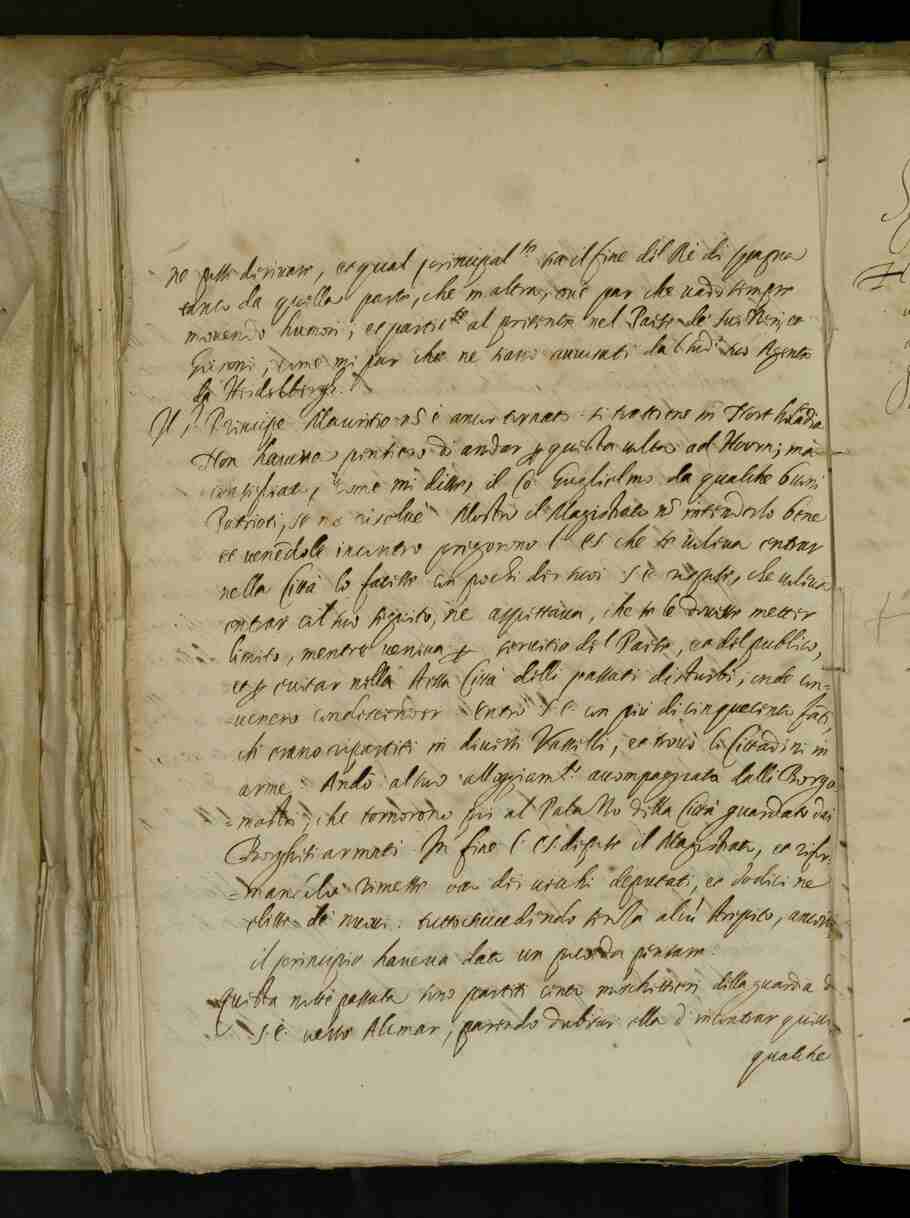 ne possa derivare, et qual principal.te sia il fine del Rè di Spagna
tanto da quella parte, che in altra, ove par che vadi sempre
movendo humori; et partic.te al presente nel Paese de Sig.ri
Grisoni, come mi par che ne siano avvisati dal suo Agente
in Heidelberga.
Il S.r Principe Mauritio nõ è ancor tornato si trattiene in North hollãdia
Non haveva pensiero di andar per questa volta ad Hoorn; mà
consigliato, come mi disse il Cõ: Guglielmo da qualche buoni
Patrioti, se ne risolvè. Mostrò il Magistrato nõ intenderlo bene
et venẽdole incontro pregorono S. E. che se voleva entrar
nella Città lo facesse con pochi de suoi. S. E. rispose, che voleva
entrar col suo seguito, ne aspettava, che se le dovesse metter
limito, mentre veniva per servitio del Paese, et del publico,
et per evitar nella stessa Città delli passati disturbi, onde con=
=venero condescender. Entrò S. E. con più di cinquecento fãti,
che erano ripartiti in diversi Vasselli, et trovò li Cittadini in
arme. Andò al suo alloggiam.to accompagnato dalli Borgo
=mastri, che tornorono poi al Palazzo della Città guardato dai
Borghesi armati. In fine S. E. depose il Magistrato, et rifor=
=mandolo rimesse otto de vecchi deputati, et dodici ne
elesse de novi: tutto succedendo senza alcũ strepito, ancorche
il principio haveva dato un poco da pensare.
Questa notte passata sono partiti cento moschettieri della guardia di
S. E. verso Alcmar, parendo dubitar ella d'incontrar quivi
qualche